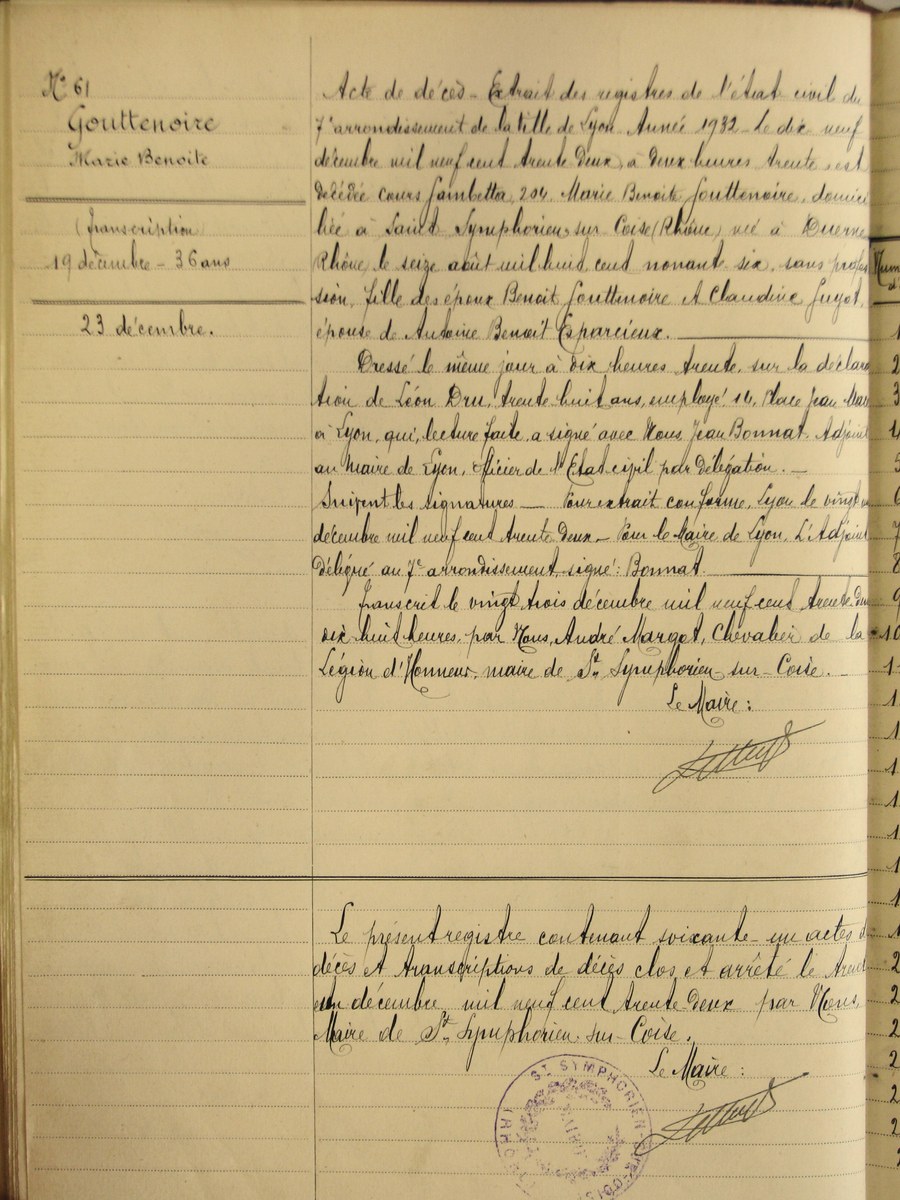 N° 61
Gouttenoire
Marie Benoite
(Transcription
19 décembre - 36 ans
23 décembre.
Acte de décès - Extrait des registres de l'état civil du
7e arrondissement de la Ville de Lyon Année 1932 - Le dix neuf
décembre mil neuf cent trente deux, à deux heures trente, est
décédée cours Gambetta, 204, Marie Benoite Gouttenoire, domici
liée à Saint Symphorien sur Coise (Rhône) née à Duerne
Rhône, le seize août mil huit cent nonante six, sans profes
sion, fille des époux Benoit Gouttenoire et Claudine Guyot,
épouse de Antoine Benoit Esparcieux.
Dressé le même jour à dix heures trente, sur la déclara
tion de Léon Dru, trente huit ans, employé, 14, Place Jean
à Lyon, qui, lecture faite, a signé avec Nous, Jean Bonnat, Adjoint
au Maire de Lyon, officier de l'Etat civil par délégation. -
Suivent les signatures - Pour extrait conforme, Lyon le vingt
décembre mil neuf cent trente deux - Pour le Maire de Lyon, L'Adjoint
délégué au 7e arrondissement, signé : Bonnat.
Transcrit le vingt trois décembre mil neuf cent trente
dix huit heures, par Nous, André Margot, Chevalier de la
Légion d'Honneur, maire de St Symphorien sur-Coise.
Le Maire :
Le présent registre contenant soixante-un actes d
décès et transcriptions de décès clos et arrêté le trente
un décembre mil neuf cent trente deux par Nous,
Maire de St Symphorien-sur-Coise.
Le Maire :
ST SYMPHORIEN
MAIRIE